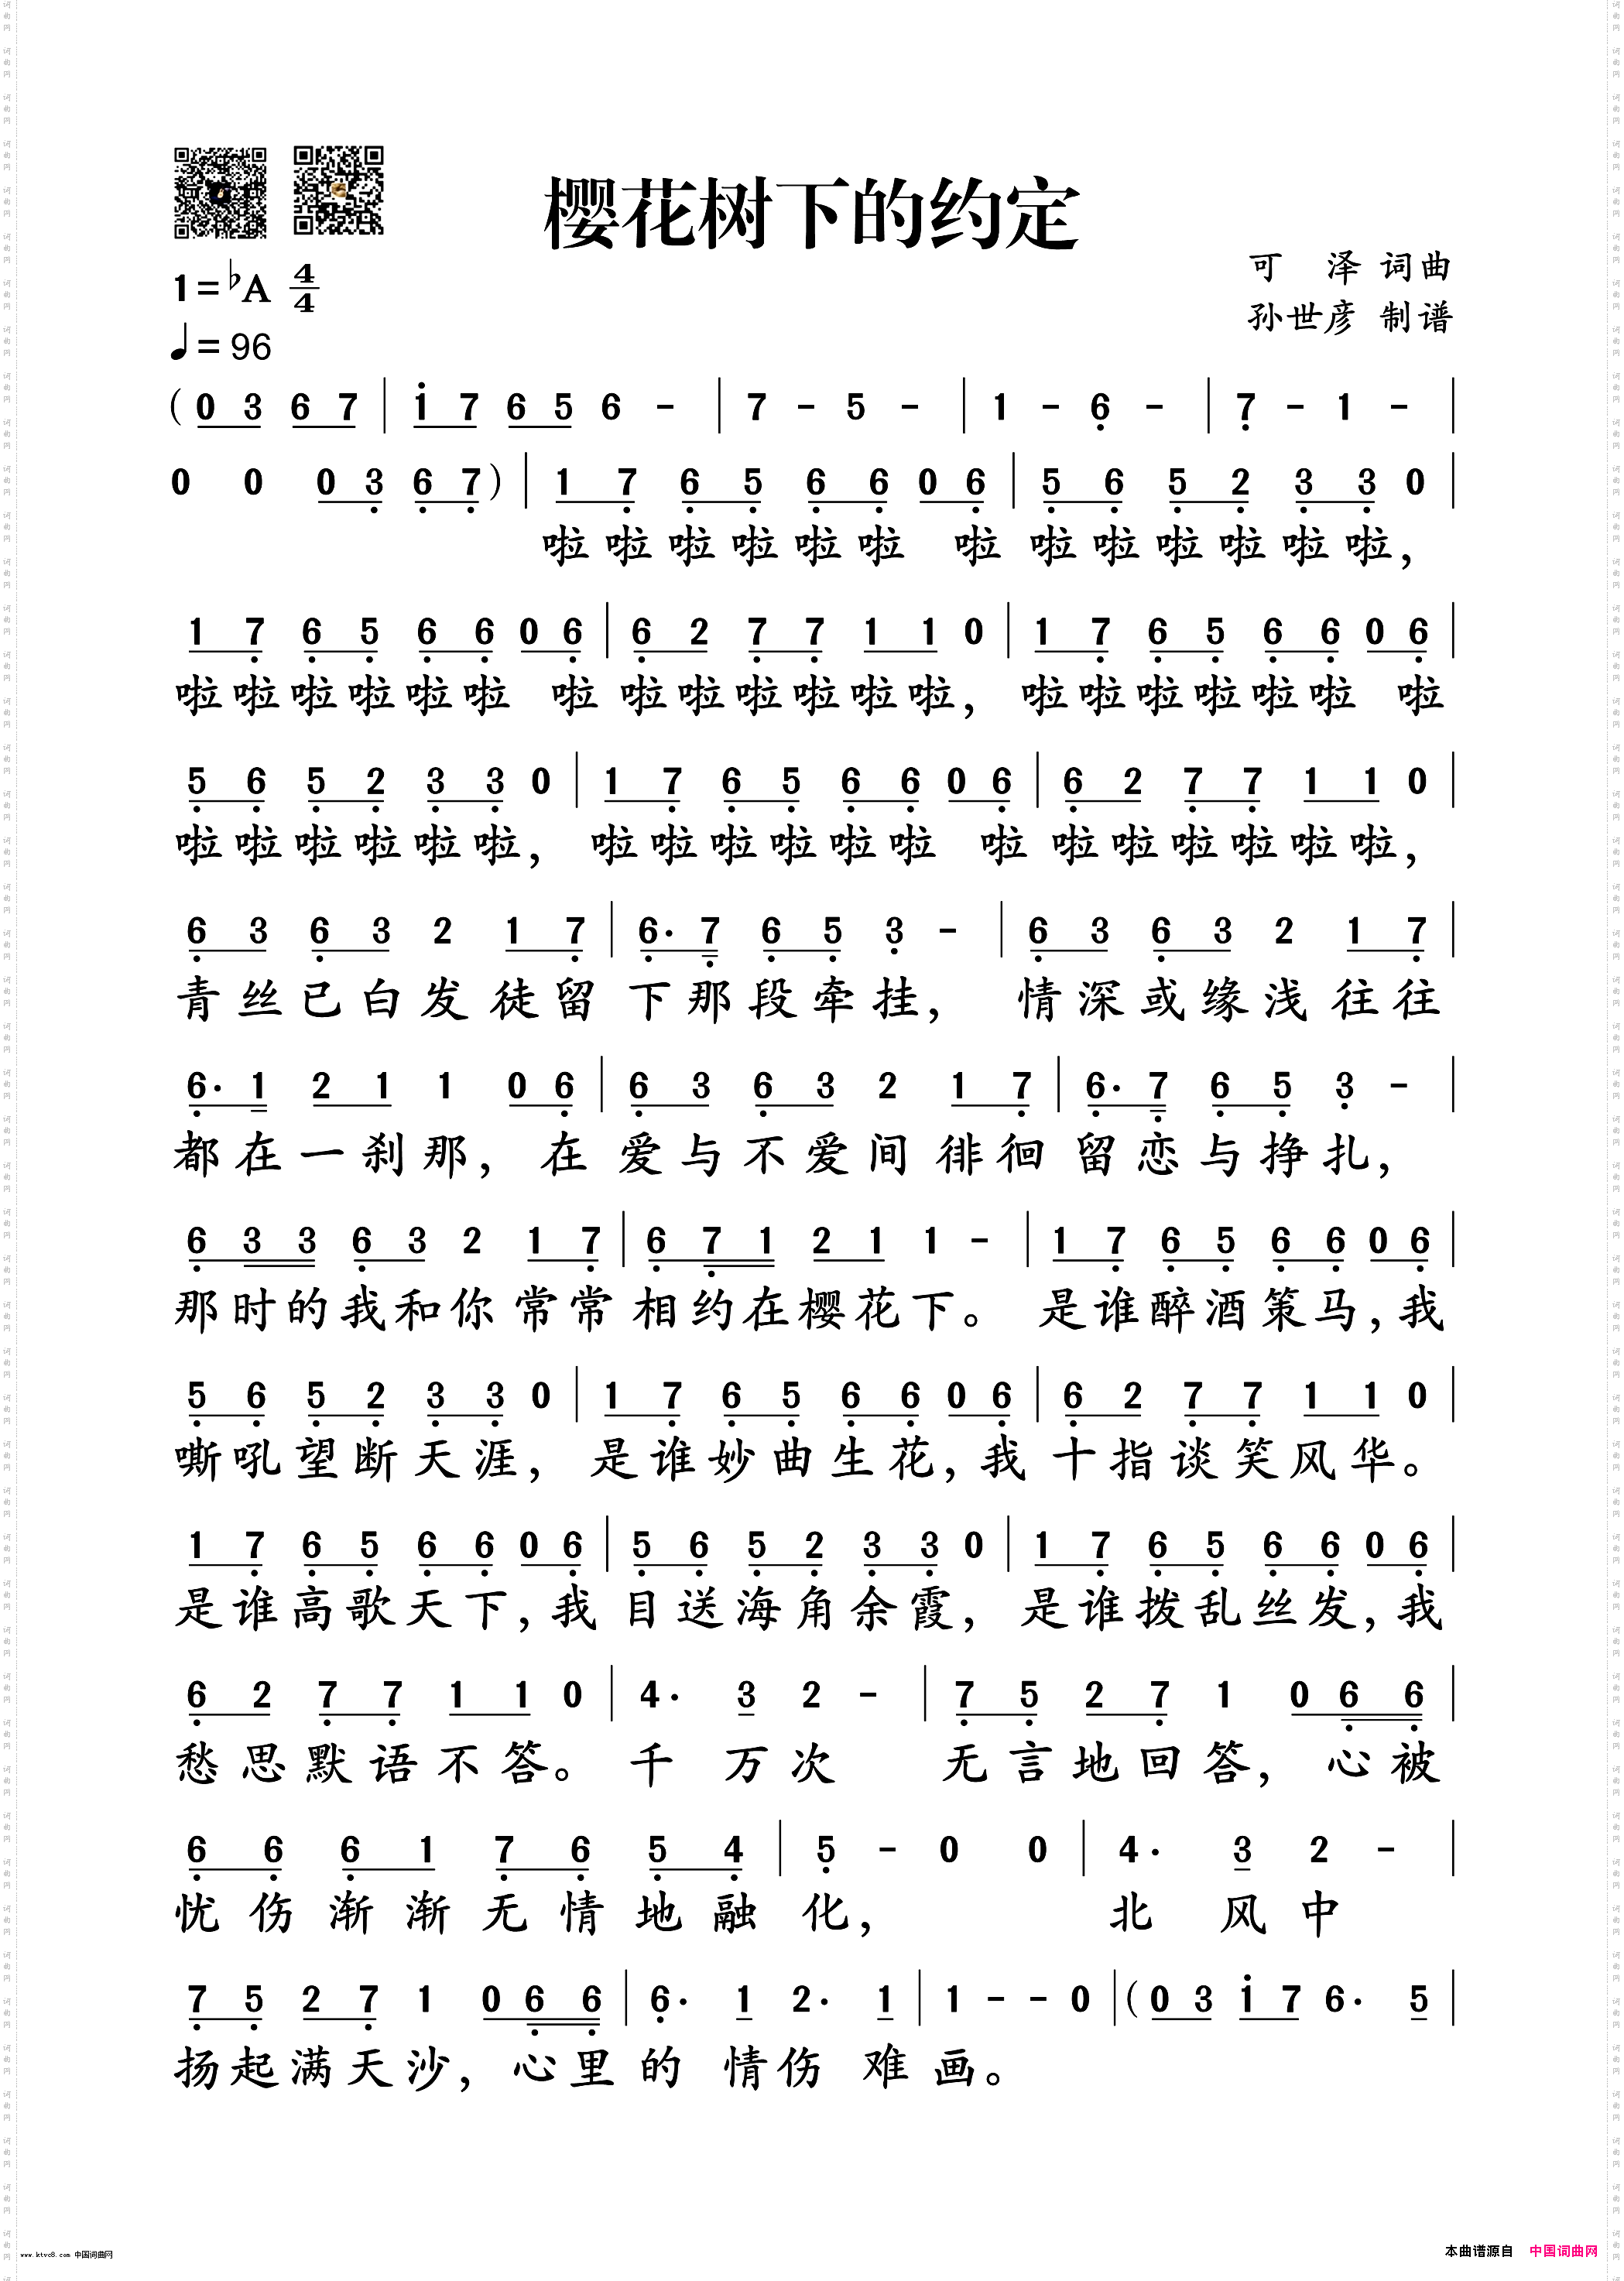 樱花树下的约定
1=♭A 4/4
可 泽 词曲
♩= 96
孙世彦 制谱
(0 3 6 7 | 1̇ 7 6 5 6 - | 7 - 5 - | 1 - 6̣ - | 7̣ - 1 - |
0 0 0 3̣ 6̣ 7̣) | 1 7̣ 6̣ 5̣ 6̣ 6̣ 0 6̣ | 5̣ 6̣ 5̣ 2̣ 3̣ 3̣ 0 |
啦啦啦啦啦啦 啦 啦啦啦啦啦啦,
1 7̣ 6̣ 5̣ 6̣ 6̣ 0 6̣ | 6̣ 2 7̣ 7̣ 1 1 0 | 1 7̣ 6̣ 5̣ 6̣ 6̣ 0 6̣ |
啦啦啦啦啦啦 啦 啦啦啦啦啦啦, 啦啦啦啦啦啦 啦
5̣ 6̣ 5̣ 2̣ 3̣ 3̣ 0 | 1 7̣ 6̣ 5̣ 6̣ 6̣ 0 6̣ | 6̣ 2 7̣ 7̣ 1 1 0 |
啦啦啦啦啦啦, 啦啦啦啦啦啦 啦 啦啦啦啦啦啦,
6̣ 3 6̣ 3 2 1 7̣ | 6̣· 7̣ 6̣ 5̣ 3̣ - | 6̣ 3 6̣ 3 2 1 7̣ |
青丝已白发徒留 下那段牵挂, 情深或缘浅往往
6̣· 1 2 1 1 0 6̣ | 6̣ 3 6̣ 3 2 1 7̣ | 6̣· 7̣ 6̣ 5̣ 3̣ - |
都在一刹那, 在 爱与不爱间徘徊 留恋与挣扎,
6̣ 3 3 6̣ 3 2 1 7̣ | 6̣ 7̣ 1 2 1 1 - | 1 7̣ 6̣ 5̣ 6̣ 6̣ 0 6̣ |
那时的我和你常常 相约在樱花下。 是谁醉酒策马,我
5̣ 6̣ 5̣ 2̣ 3̣ 3̣ 0 | 1 7̣ 6̣ 5̣ 6̣ 6̣ 0 6̣ | 6̣ 2 7̣ 7̣ 1 1 0 |
嘶吼望断天涯, 是谁妙曲生花,我 十指谈笑风华。
1 7̣ 6̣ 5̣ 6̣ 6̣ 0 6̣ | 5̣ 6̣ 5̣ 2̣ 3̣ 3̣ 0 | 1 7̣ 6̣ 5̣ 6̣ 6̣ 0 6̣ |
是谁高歌天下,我 目送海角余霞, 是谁拨乱丝发,我
6̣ 2 7̣ 7̣ 1 1 0 | 4· 3 2 - | 7̣ 5̣ 2 7̣ 1 0 6̣ 6̣ |
愁思默语不答。 千 万次 无言地回答, 心被
6̣ 6̣ 6̣ 1 7̣ 6̣ 5̣ 4̣ | 5̣ - 0 0 | 4· 3 2 - |
忧伤渐渐无情地融 化, 北 风中
7̣ 5̣ 2 7̣ 1 0 6̣ 6̣ | 6̣· 1 2· 1 | 1 - - 0 | (0 3 1̇ 7 6· 5 |
扬起满天沙, 心里 的 情伤 难 画。
www.ktvc8.com 中国词曲网
本曲谱源自 中国词曲网